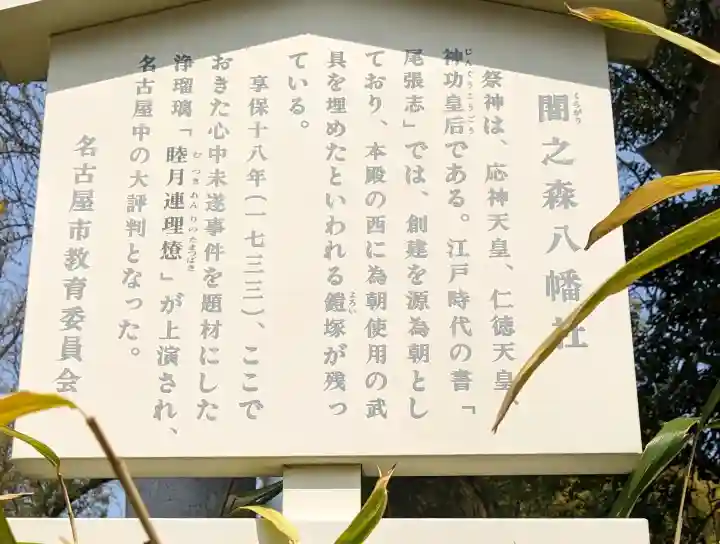 闇之森八幡社
くらがり
祭神は、応神天皇、仁徳天皇
神功皇后である。江戸時代の書「
じんぐうこうごう
尾張志」では、創建を源為朝とし
ており、本殿の西に為朝使用の武
具を埋めたといわれる鎧塚が残っ
よろい
ている。
享保十八年(一七三三)、ここで
おきた心中未遂事件を題材にした
浄瑠璃「睦月連理𣜿」が上演され、
むつきれんりのたまつばき
名古屋中の大評判となった。
名古屋市教育委員会